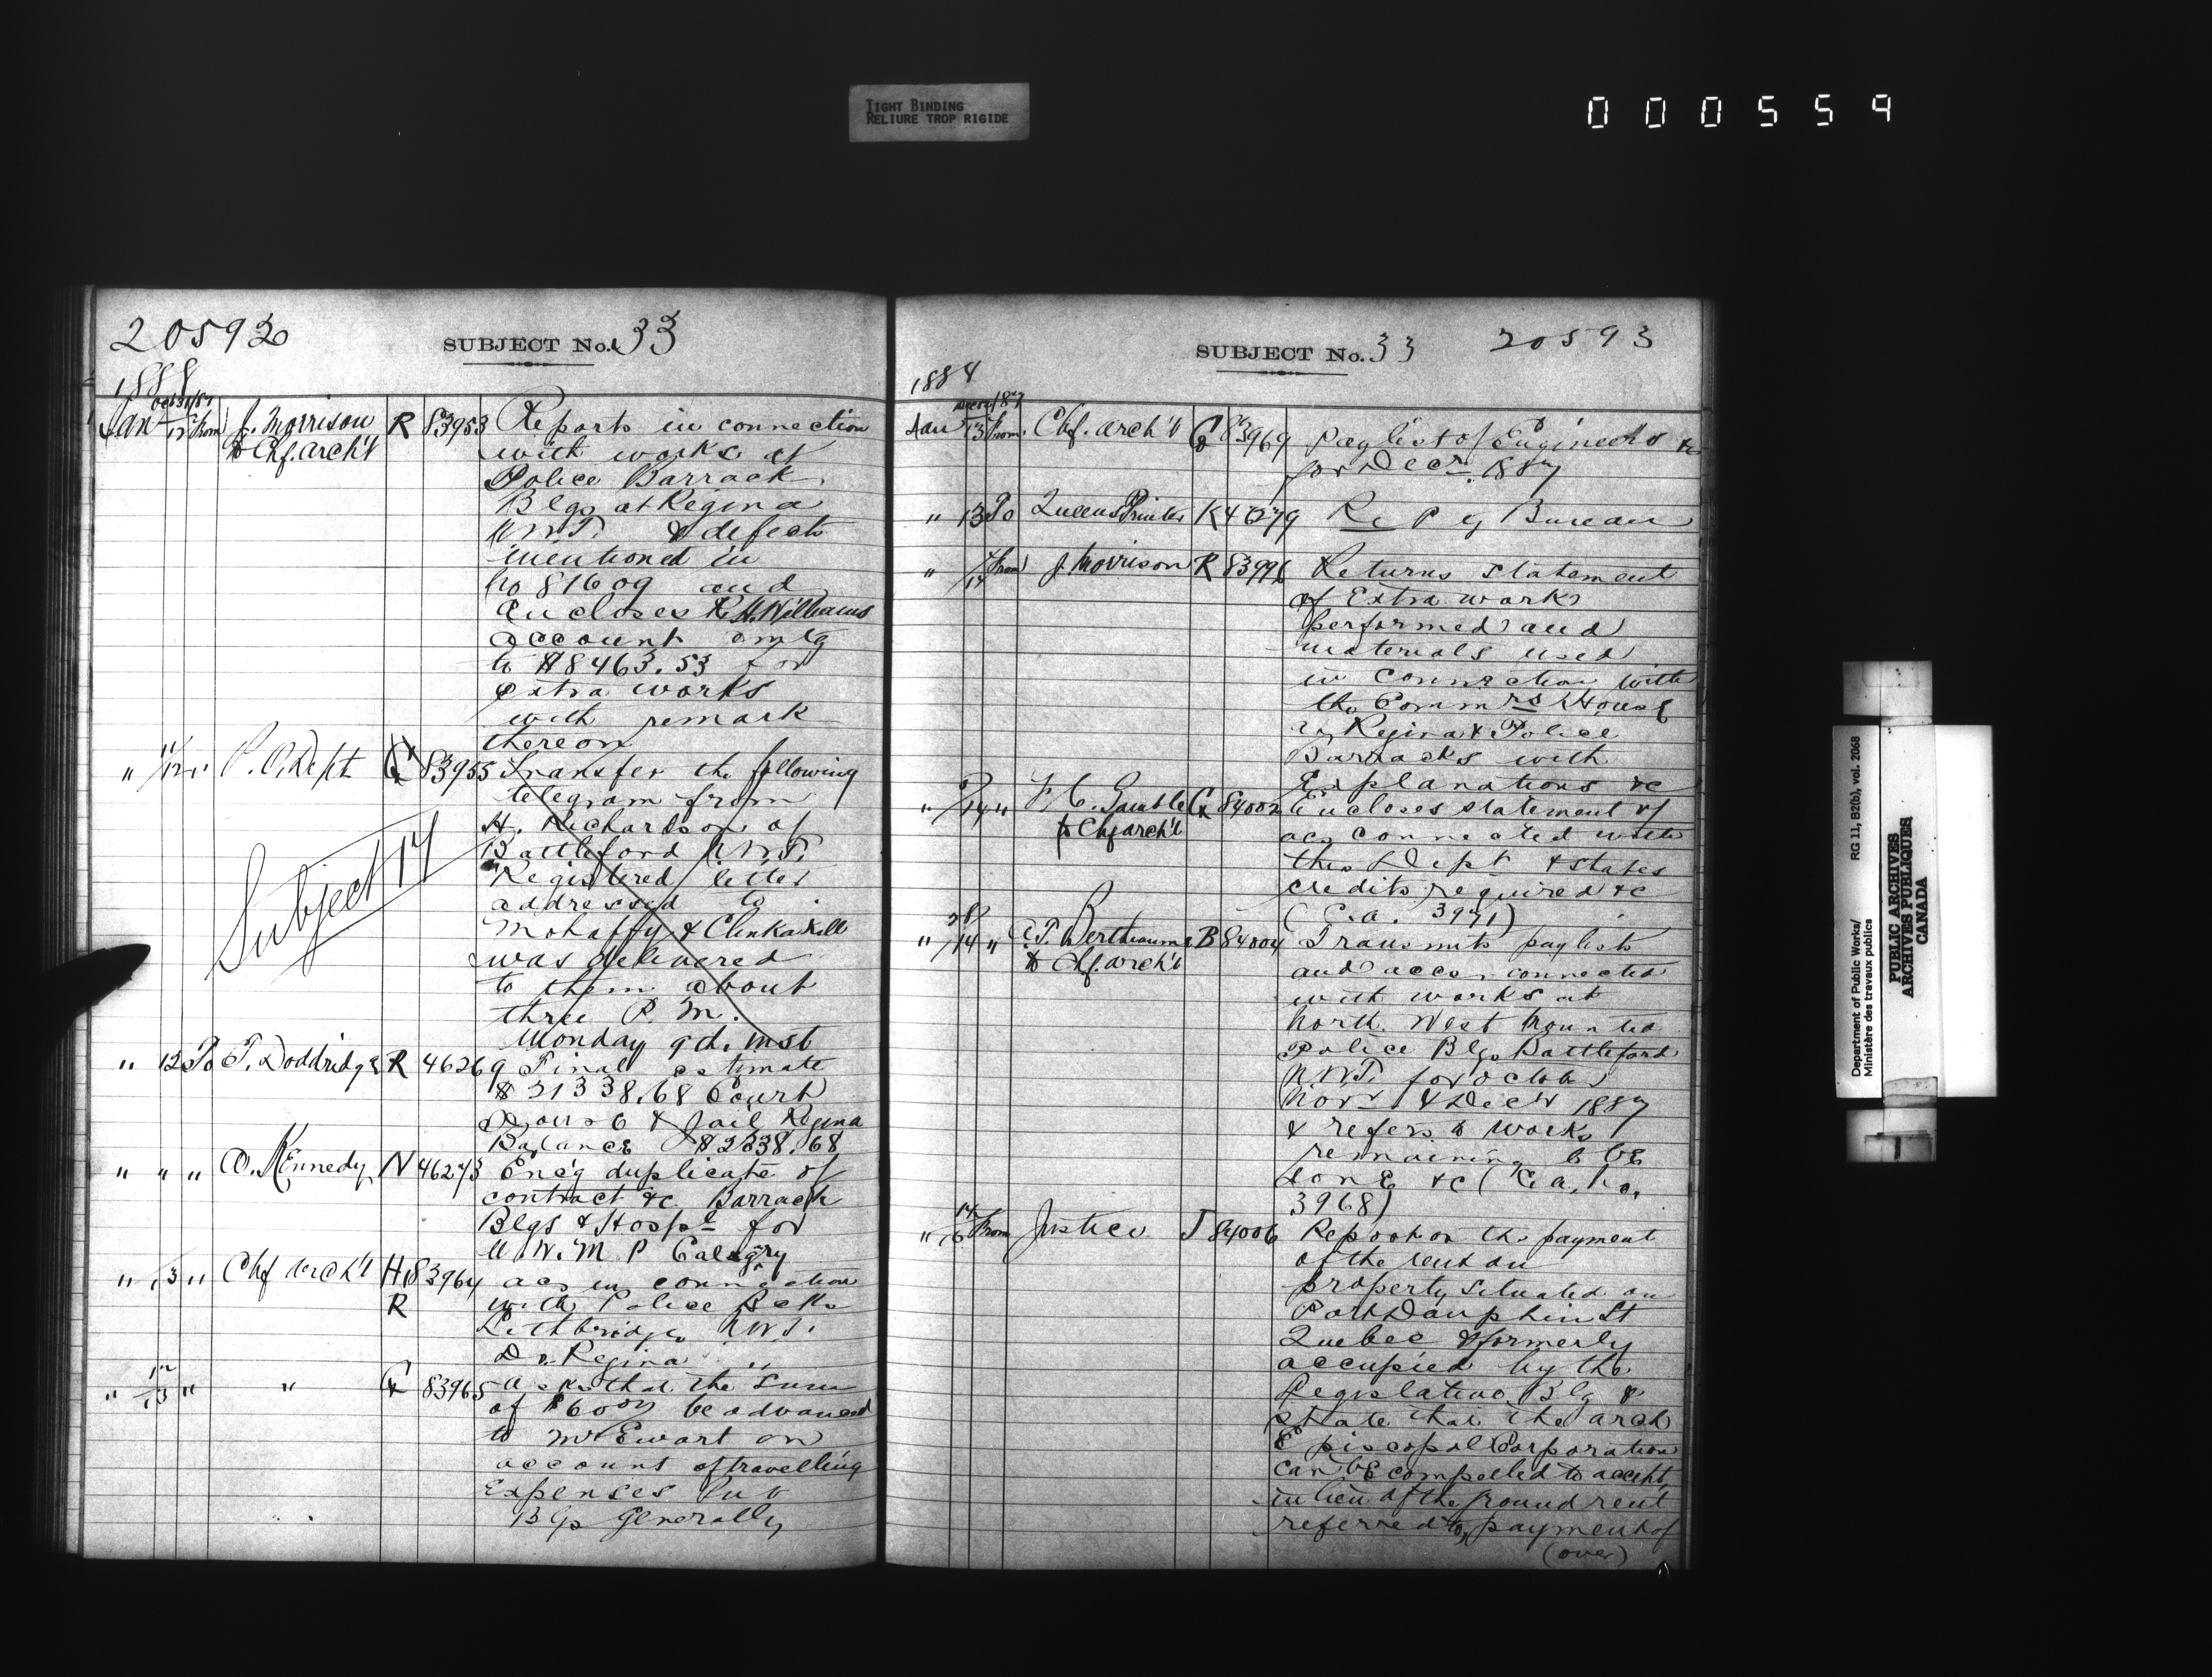 TIGHT BINDING
RELIURE TROP RIGIDE
000559
20592
SUBJECT No. 33
1888
Jan Oct 31/87 12 From J. Morrison R 83953 Reports in connection
to Chf. Arch't with works at
Police Barrack
Blgs at Regina
N.W.T. & defects
mentioned in
No 81609 and
encloses R.H. Williams
account amtg
to $8463.53 for
extra works
with remark
thereon
" 11/12 " P.O. Dept 83955 Transfer the following
telegram from
H. Richardson of
Battleford N.W.T.
Registered letter
addressed to
Mohaffy & Clinkaskill
was delivered
to them about
three P.M.
Monday 9th inst
Subject 17
" 12 To T. Doddridge R 46269 Final estimate
$31338.68 Court
House & Jail Regina
Balance $2238.68
" " " Kennedy N 46273 Enc'g duplicate of
contract &c Barrack
Blgs & Hospl for
N.W.M.P Calegry
" 13 " Chf Arch't H 83964 acs in connection
R with Police
Lethbridge N.W.T.
Do Regina "
" 12/13 " " G 83965 asks that the sum
of be advanced
to Mr Ewart on
account of travelling
Expenses
Bgs Generally
SUBJECT No. 33 20593
1888
Jan 13 From Chf. Arch't G 83969 Paylist of Engineers &c
for Decr. 1887
" 13 To Queens Printer K 46279 Re P g Bureau
" 14 From J. Morrison R 83996 Returns statement
of Extra works
performed and
materials used
in connection with
the Commrs House
Regina & Police
Barracks with
Explanations &c
" 14 " F.C. Gamble G 84002 Encloses statement of
to Chf Arch't acs connected with
this Dept & states
credits required &c
(C.a. 3971)
" 28/14 " Bertheaume B 84004 Transmits paylists
to Chf. Arch't and accs. connected
with works at
North West Mounted
Police Blgs Battleford
N.W.T. for October
Novr. & Decr 1887
& refers to works
remaining to be
done &c (C.a. No.
3968)
" 14/16 From Justice J 84006 Report on the payment
of the rent on
property situated on
Port Dauphin St
Quebec & formerly
occupied by the
Legislative Blg &
state that the Arch
Episcopal Corporation
can be compelled to accept
in lieu of the ground rent
referred to, payment of
(over)
Department of Public Works/
Ministère des travaux publics
RG 11, B2(b), vol. 2068
PUBLIC ARCHIVES
ARCHIVES PUBLIQUES
CANADA